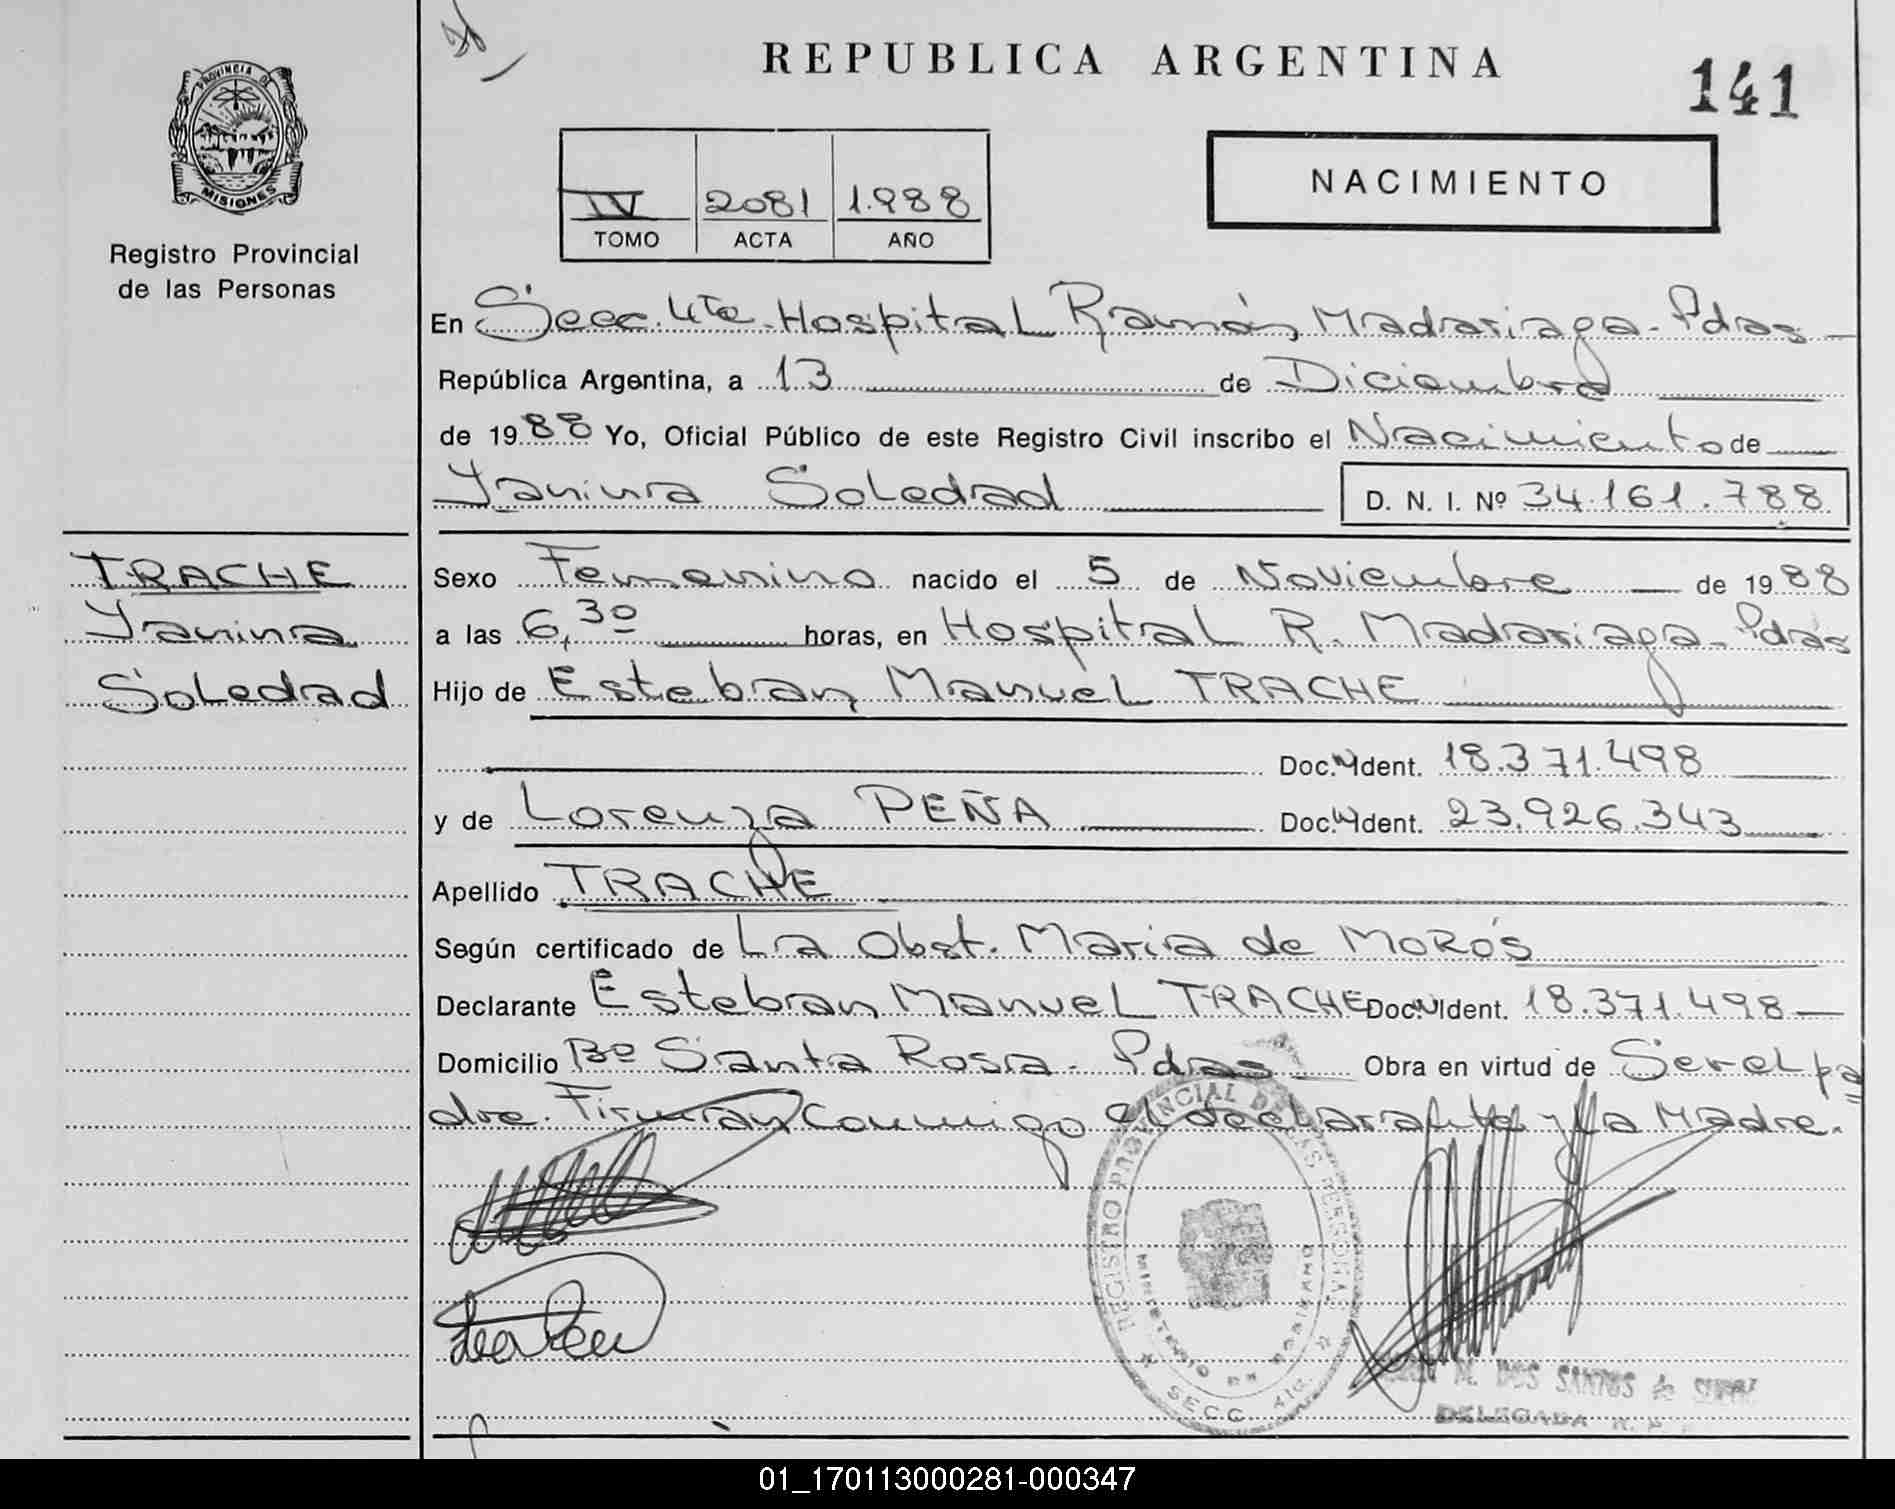 REPUBLICA ARGENTINA
141
PROVINCIA DE
MISIONES
Registro Provincial
de las Personas
IV 2081 1.988
TOMO ACTA AÑO
NACIMIENTO
En Secc. 4ta. Hospital Ramón Madariaga - Pdas
República Argentina, a 13 de Diciembre
de 1988 Yo, Oficial Público de este Registro Civil inscribo el Nacimiento de
Yanina Soledad D. N. I. Nº 34.161.788
TRACHE
Yanina
Soledad
Sexo Femenino nacido el 5 de Noviembre de 1988
a las 6,30 horas, en Hospital R. Madariaga - Pdas
Hijo de Esteban Manuel TRACHE
Doc. Ident. 18.371.498
y de Lorenza PEÑA Doc. Ident. 23.926.343
Apellido TRACHE
Según certificado de La Obst. Maria de MoRós
Declarante Esteban Manuel TRACHE Doc. Ident. 18.371.498
Domicilio Bº Santa Rosa - Pdas Obra en virtud de Ser el pa
dre. Firman conmigo el declarante y la Madre.
REGISTRO PROVINCIAL DE LAS PERSONAS
MINISTERIO DE GOBIERNO
SECC. 4ta.
M. DOS SANTOS de
DELEGADA R. P.
01_170113000281-000347